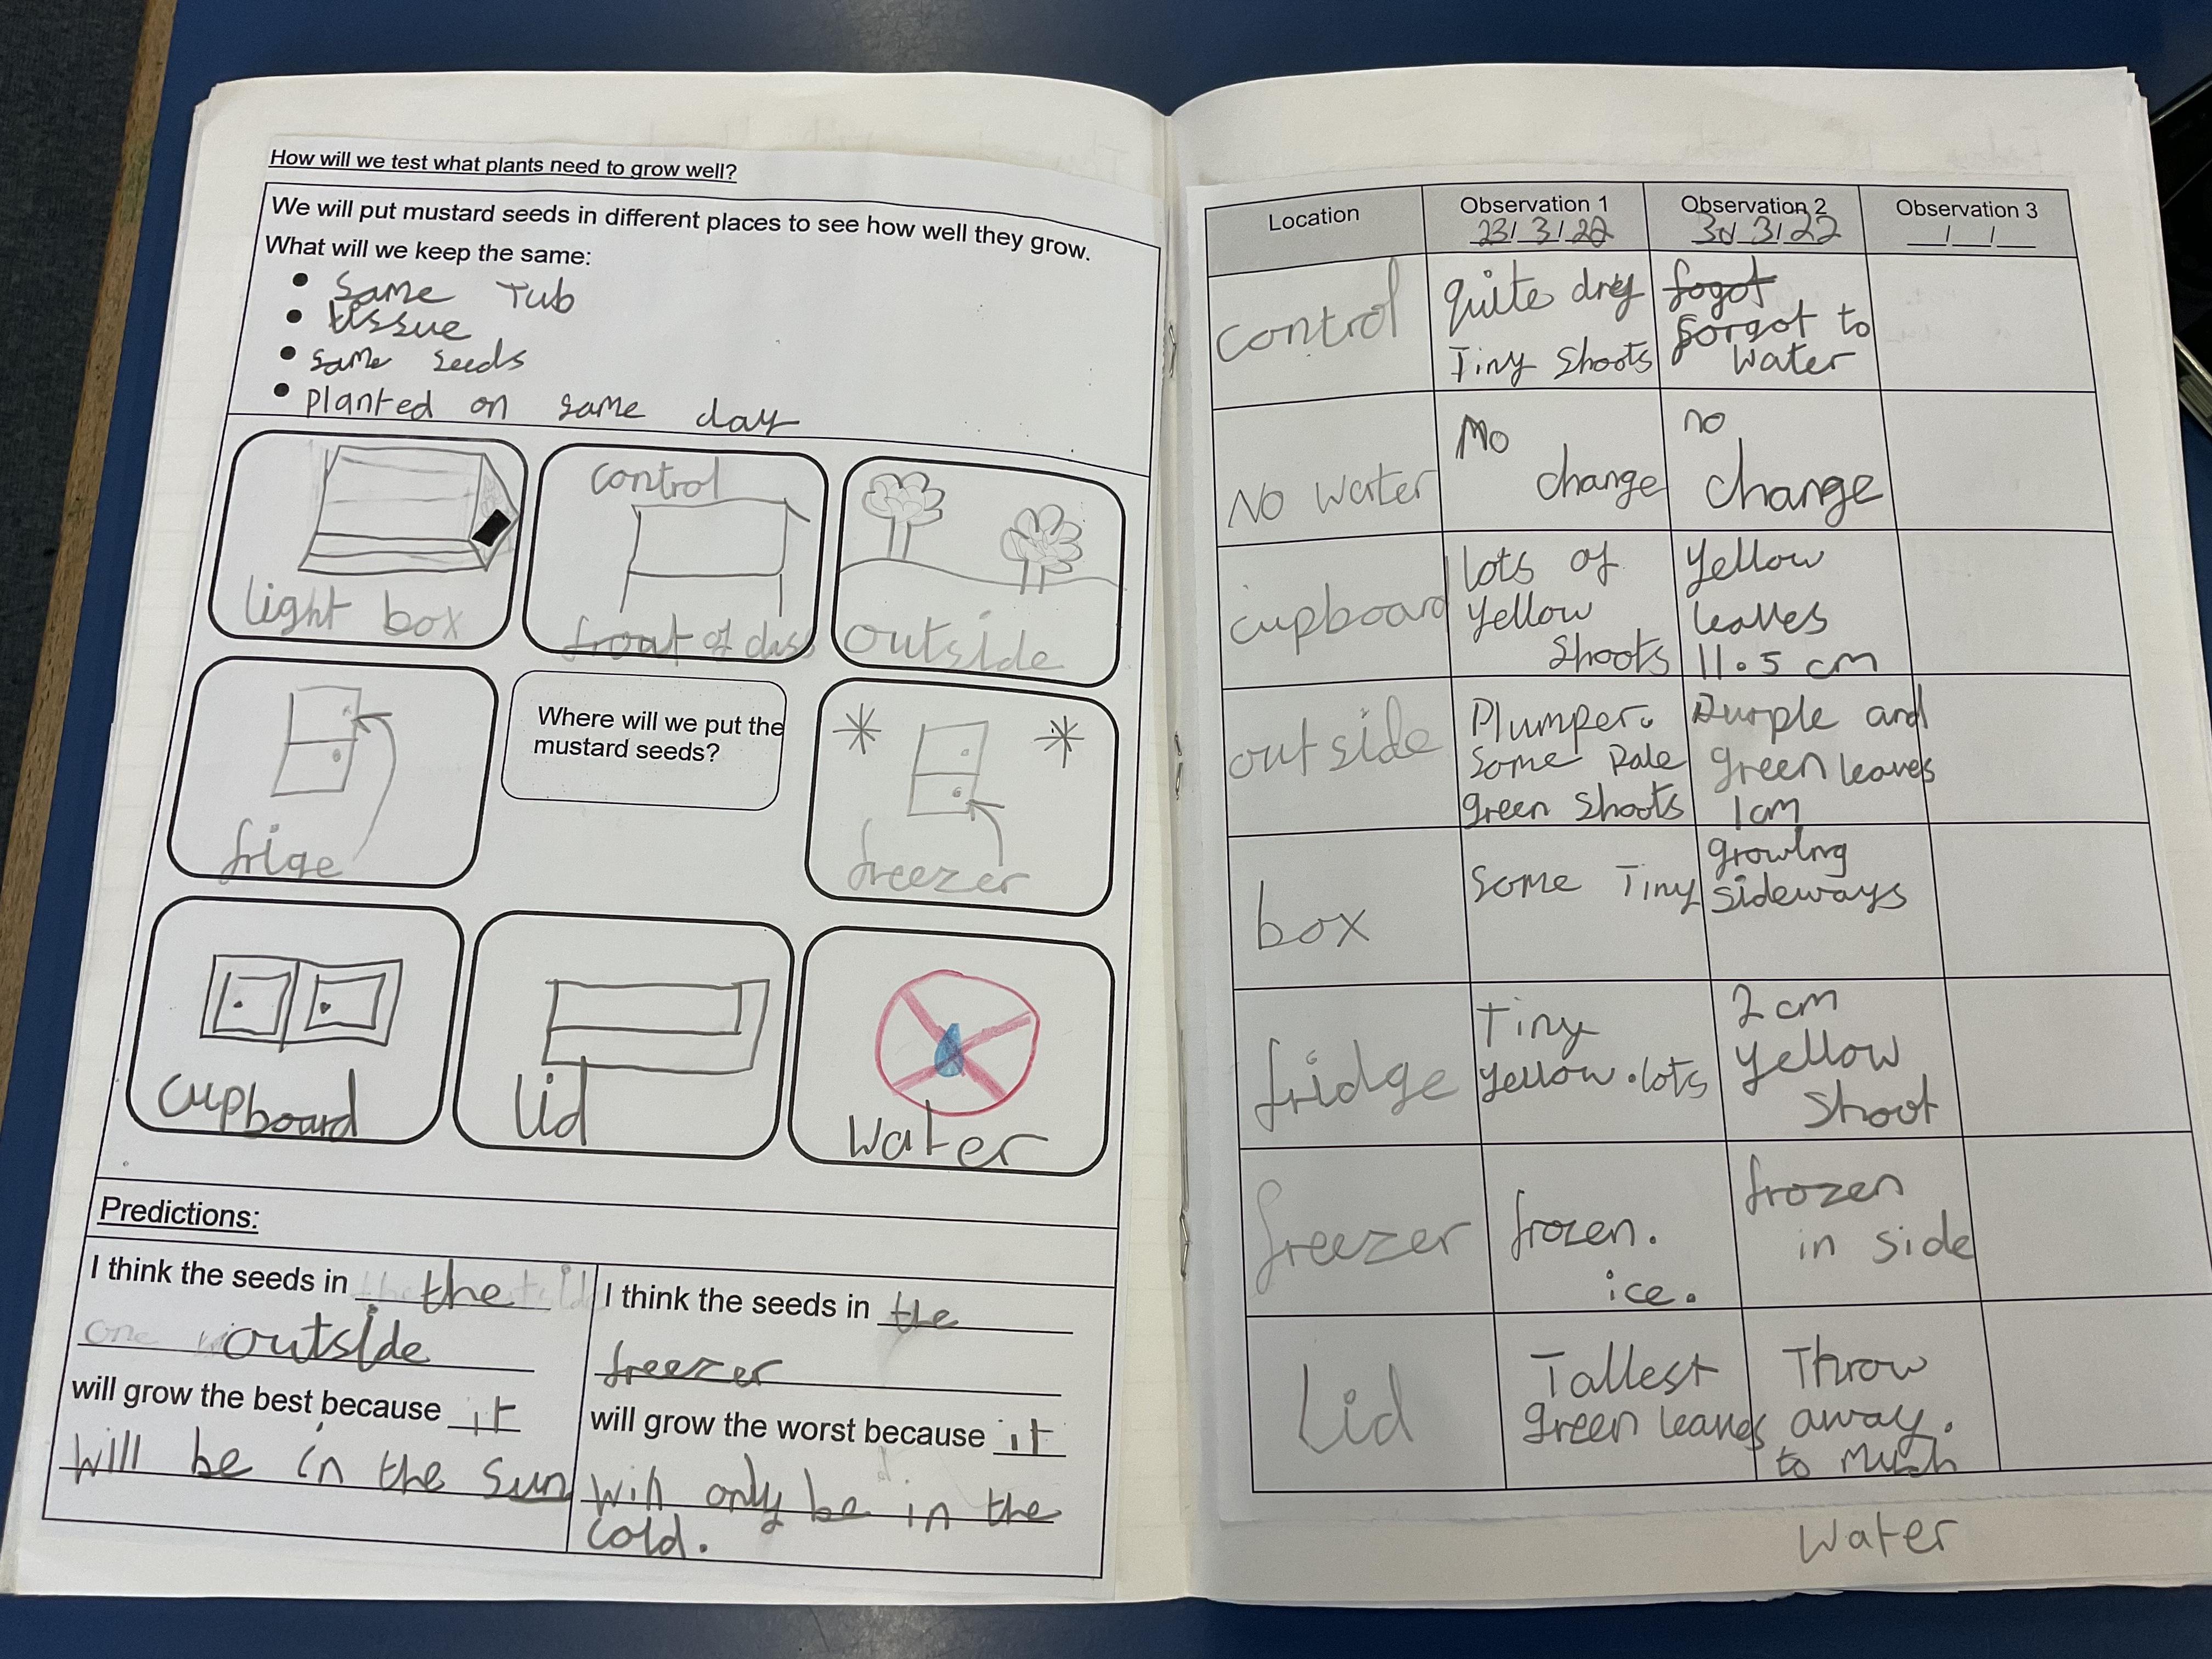 How will we test what plants need to grow well?
We will put mustard seeds in different places to see how well they grow.
What will we keep the same:
• same Tub
• tissue
• same seeds
• planted on same day
light box
control
front of class
outside
frige
Where will we put the
mustard seeds?
freezer
cupboard
lid
water
Predictions:
I think the seeds in the
outside
will grow the best because it
will be in the sun
I think the seeds in the
freezer
will grow the worst because it
will only be in the
cold.
Location
Observation 1
23/3/22
Observation 2
30/3/22
Observation 3
_/_/_
control
quite drey
Tiny Shoots
fogot
forgot to
water
No water
No
change
no
change
cupboard
lots of
yellow
shoots
yellow
leaves
11.5 cm
outside
Plumper.
some pale
green shoots
Purple and
green leaves
1cm
box
some Tiny
growing
sideways
fridge
Tiny
yellow . lots
2 cm
yellow
shoot
freezer
frozen.
ice.
frozen
in side
Lid
Tallest
green leaves
Throw
away.
to much
water